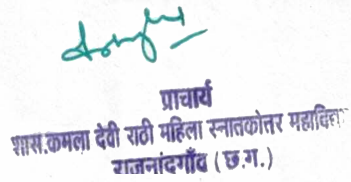 प्राचार्य
शास.कमला देवी राठी महिला स्नातकोत्तर
राजनांदगाँव (छ.ग.)